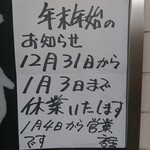 年末年始の
お知らせ
12月31日から
1月3日まで
休業いたします
1月4日から営業
です